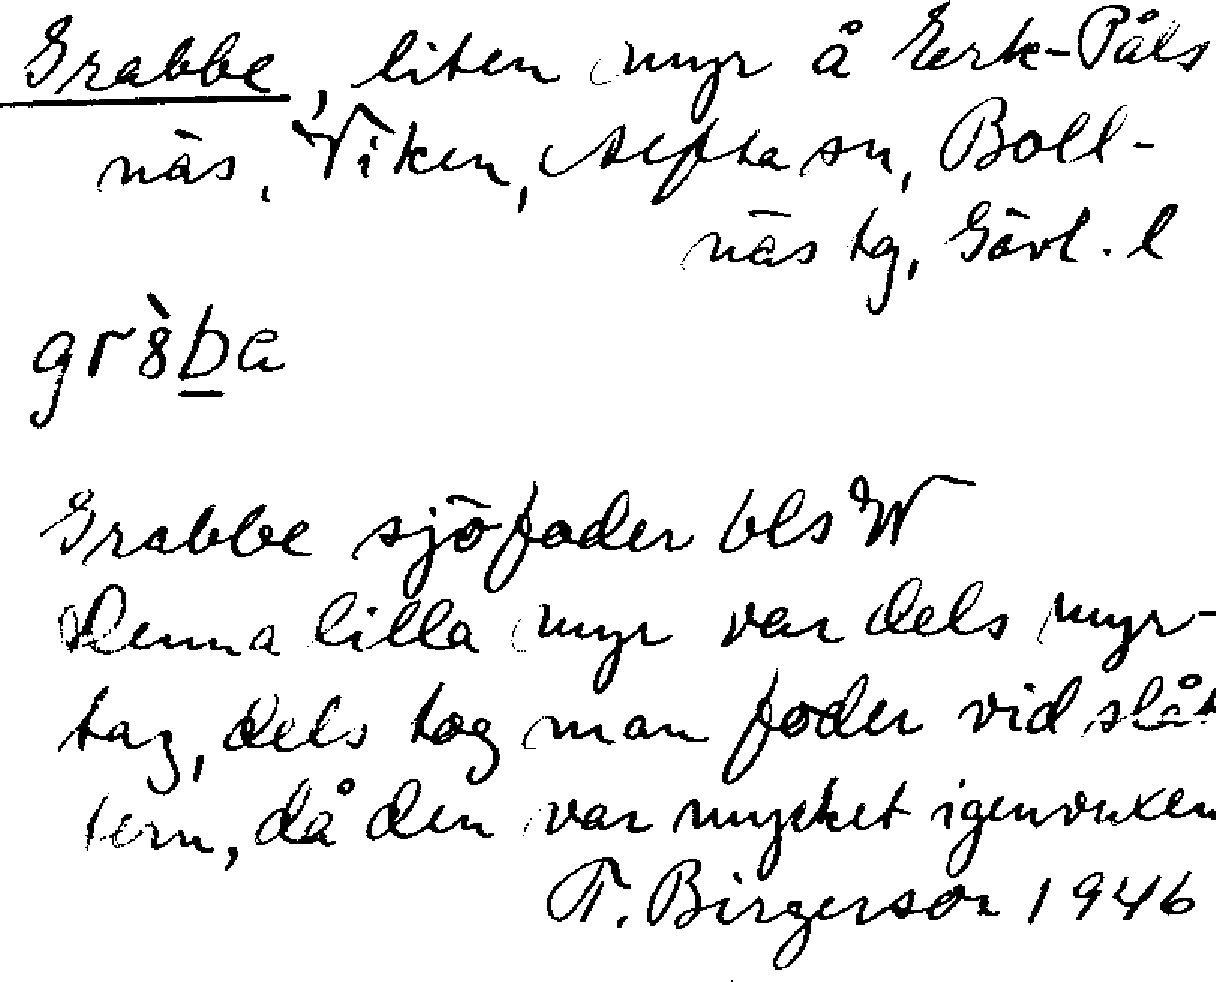 Grabbe, liten myr å Erk-Påls
näs, Viken, Alfta sn, Boll-
näs tg, Gävl. l
Grabbe sjöfoder bls W
Denna lilla myr var dels myr-
tag, dels tog man foder vid slåt
tern, då den var mycket igenvuxen
T. Birgerson 1946